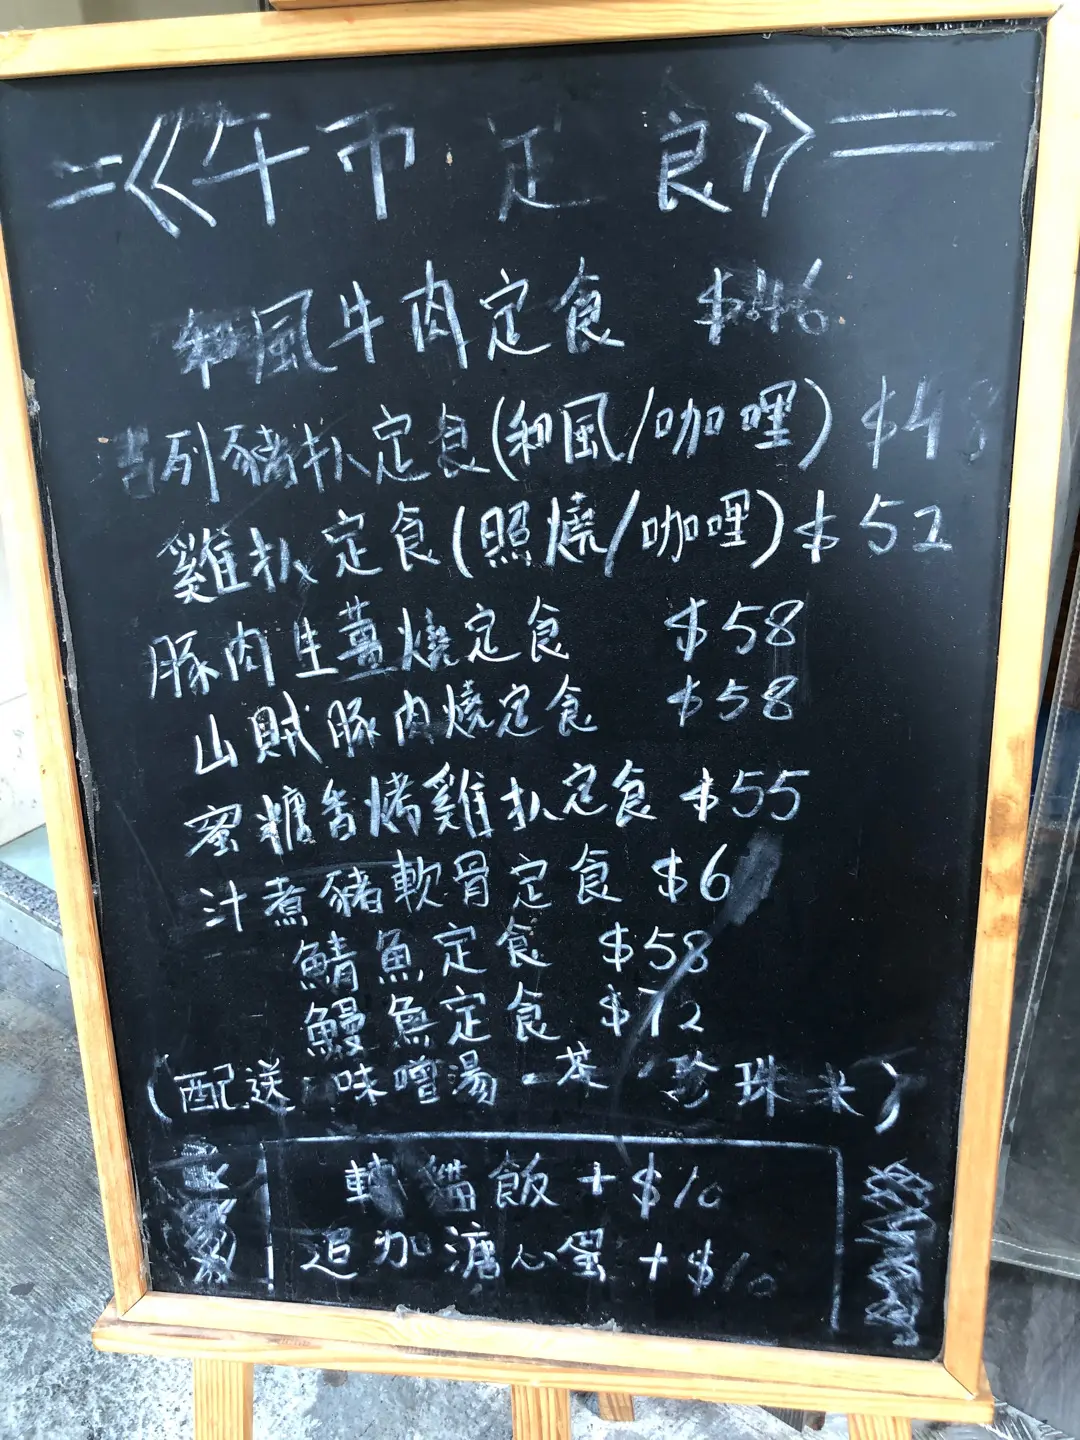 《午市定食》
和風牛肉定食 $46
吉列豬扒定食(和風/咖哩) $48
雞扒定食(照燒/咖哩) $52
豚肉生薑燒定食 $58
山賊豚肉燒定食 $58
蜜糖香烤雞扒定食 $55
汁煮豬軟骨定食 $6
鯖魚定食 $58
鰻魚定食 $72
(配送 味噌湯 茶 珍珠米)
轉貓飯 +$10
追加溏心蛋 +$10